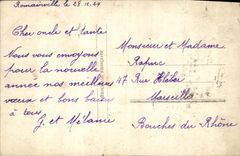 Romainville le 28.12.29
Cher oncle et tante
Nous vous envoyons
pour la nouvelle
année nos meilleurs
vœux et bons baisers
à tous
G. et Mélanie
Monsieur et Madame
47 Rue
Marseille
Bouches du Rhône